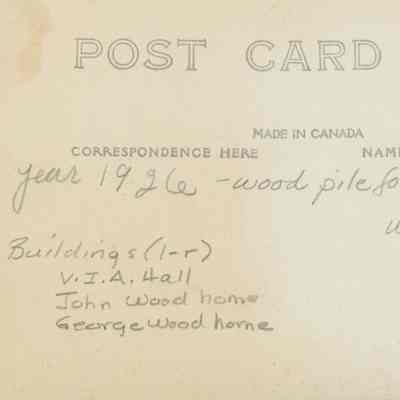 POST CARD
MADE IN CANADA
CORRESPONDENCE HERE NAM
year 1926 - wood pile fo
Buildings (l-r)
V.I.A. Hall
John Wood home
George Wood home